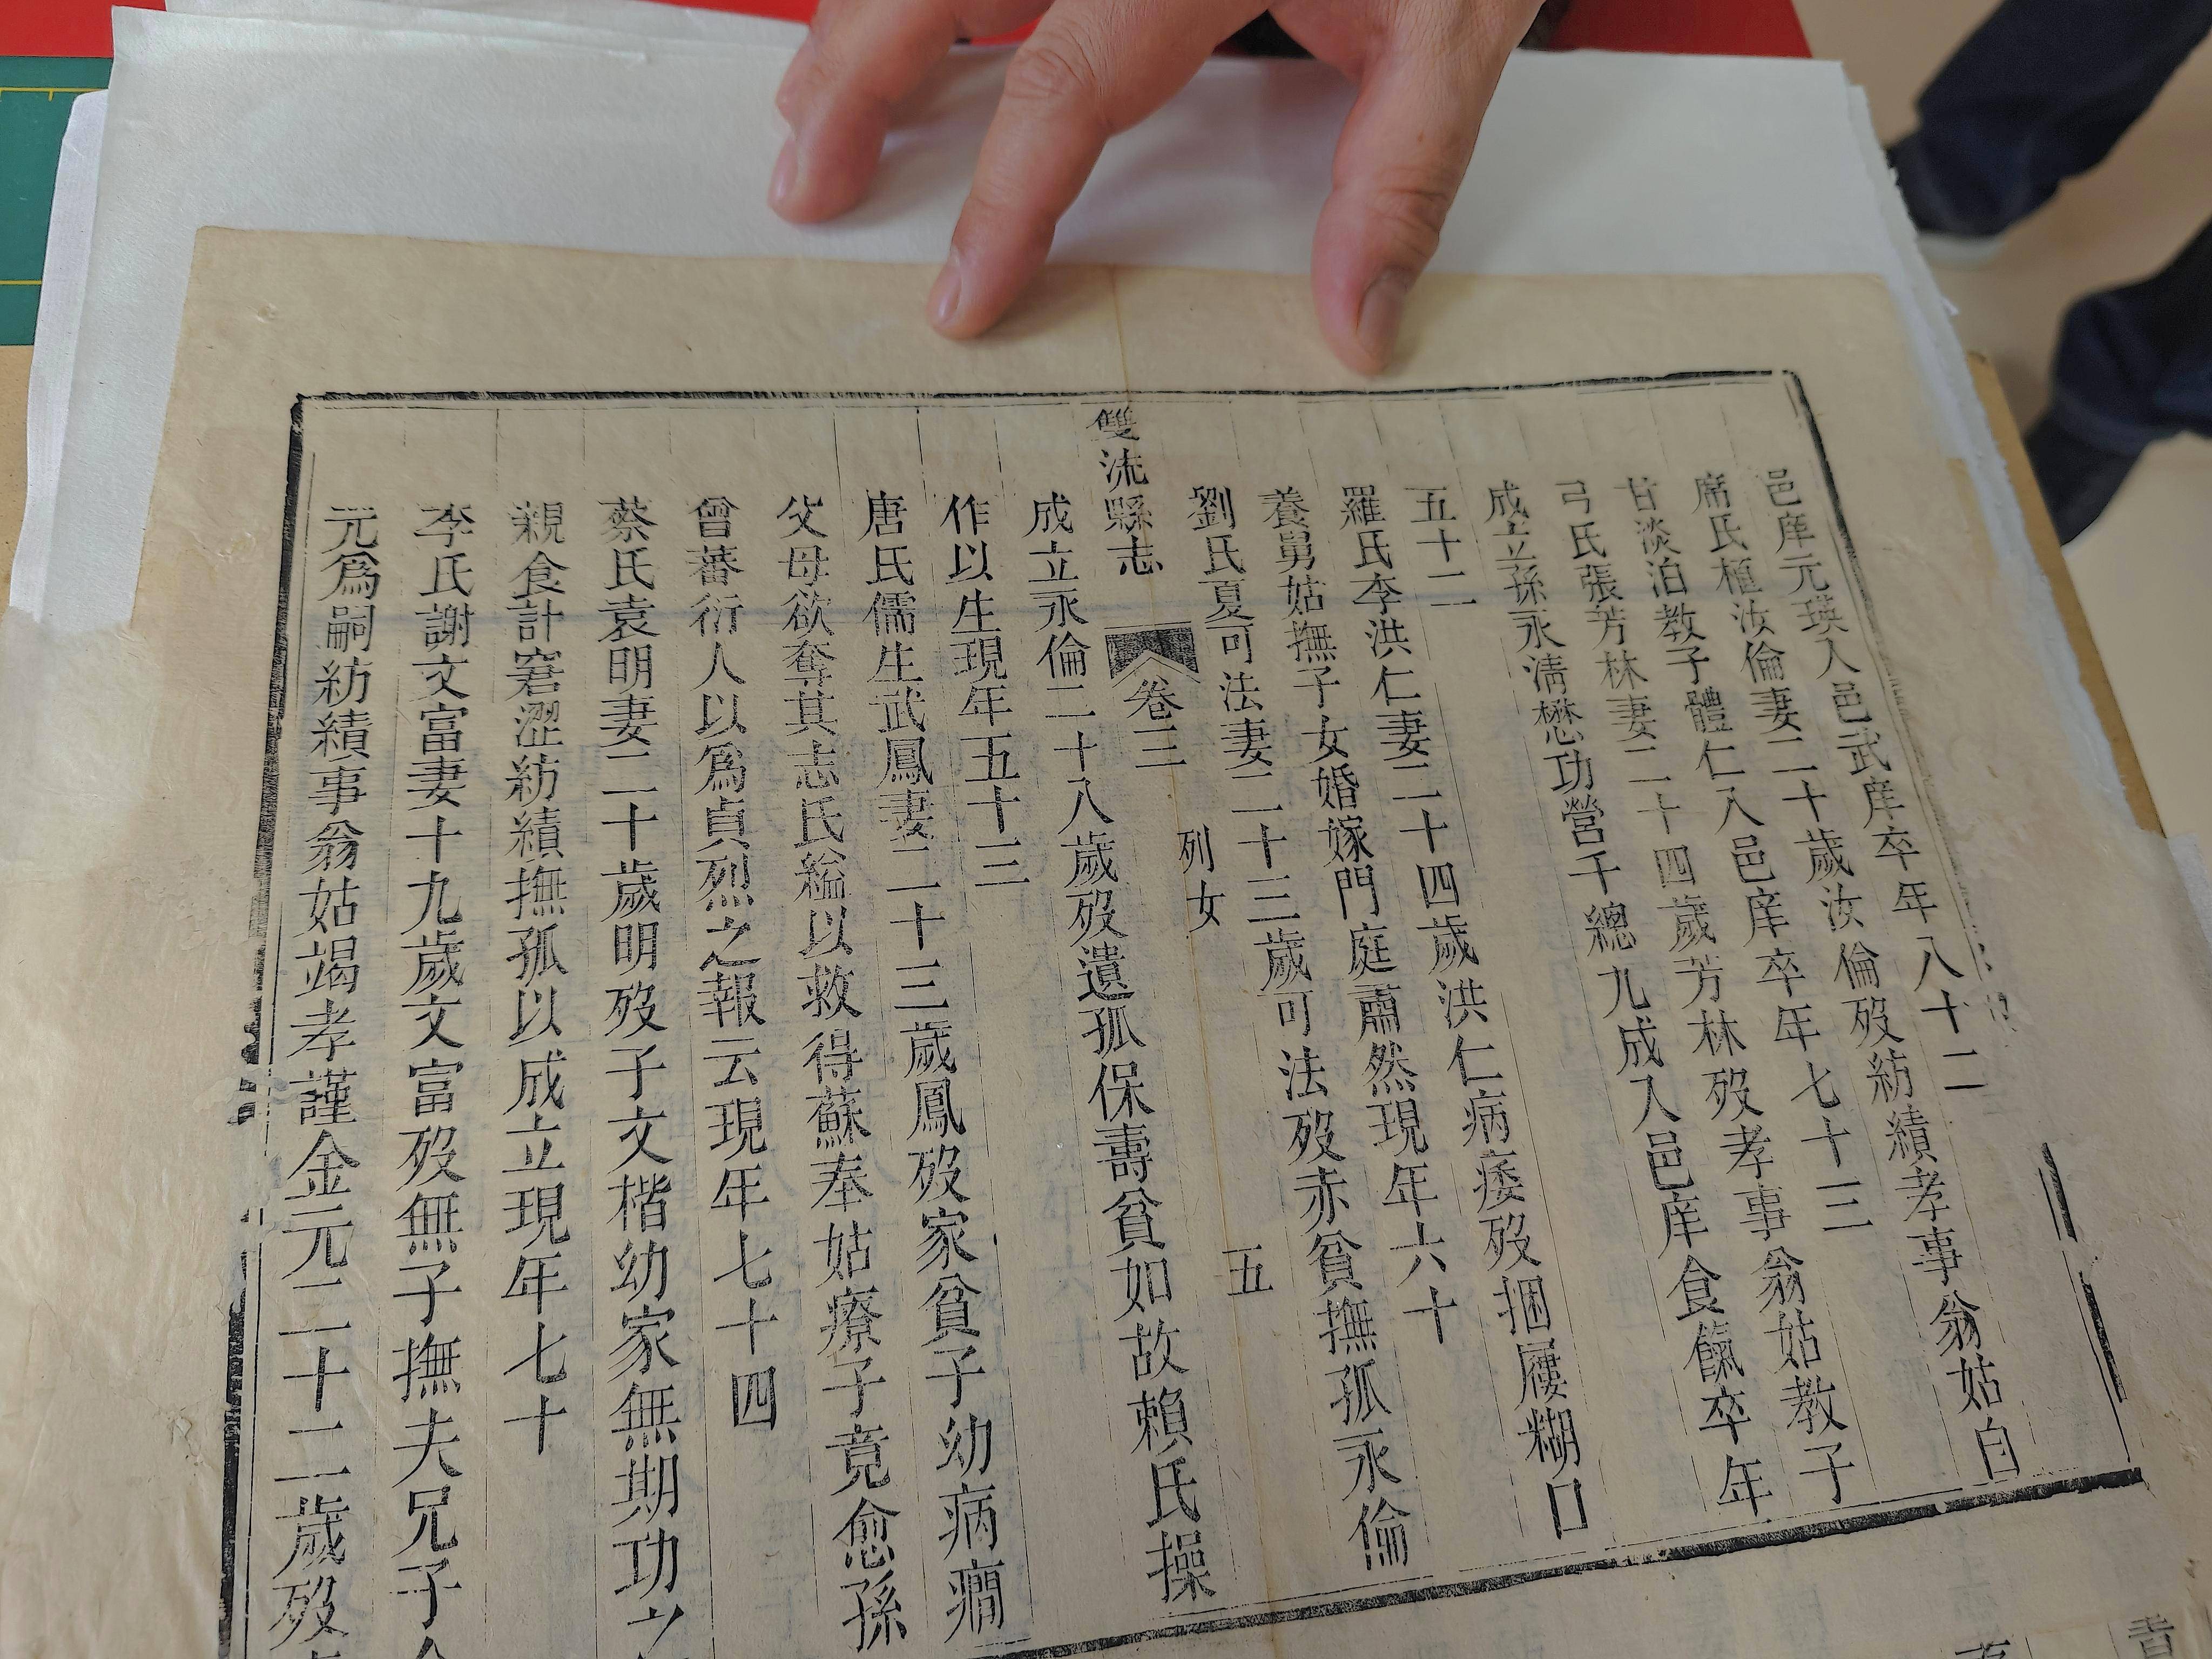 邑庠元瑛入邑武庠卒年八十二
席氏極汝倫妻二十歲汝倫歿紡績孝事翁姑自
甘淡泊教子體仁入邑庠卒年七十三
弓氏張芳林妻二十四歲芳林歿孝事翁姑教子
成立孫永清懋功營千總九成入邑庠食餼卒年
五十二
羅氏李洪仁妻二十四歲洪仁病痿歿捆屨糊口
養舅姑撫子女婚嫁門庭肅然現年六十
劉氏夏可法妻二十三歲可法歿赤貧撫孤永倫
雙流縣志 卷三 列女 五
成立永倫二十八歲歿遺孤保壽貧如故賴氏操
作以生現年五十三
唐氏儒生武鳳妻二十三歲鳳歿家貧子幼病癇
父母欲奪其志氏縊以救得蘇奉姑療子竟愈孫
曾蕃衍人以為貞烈之報云現年七十四
蔡氏袁明妻二十歲明歿子文楷幼家無期功之
親食計窘澀紡績撫孤以成立現年七十
李氏謝文富妻十九歲文富歿無子撫夫兄子金
元爲嗣紡績事翁姑竭孝謹金元二十二歲歿